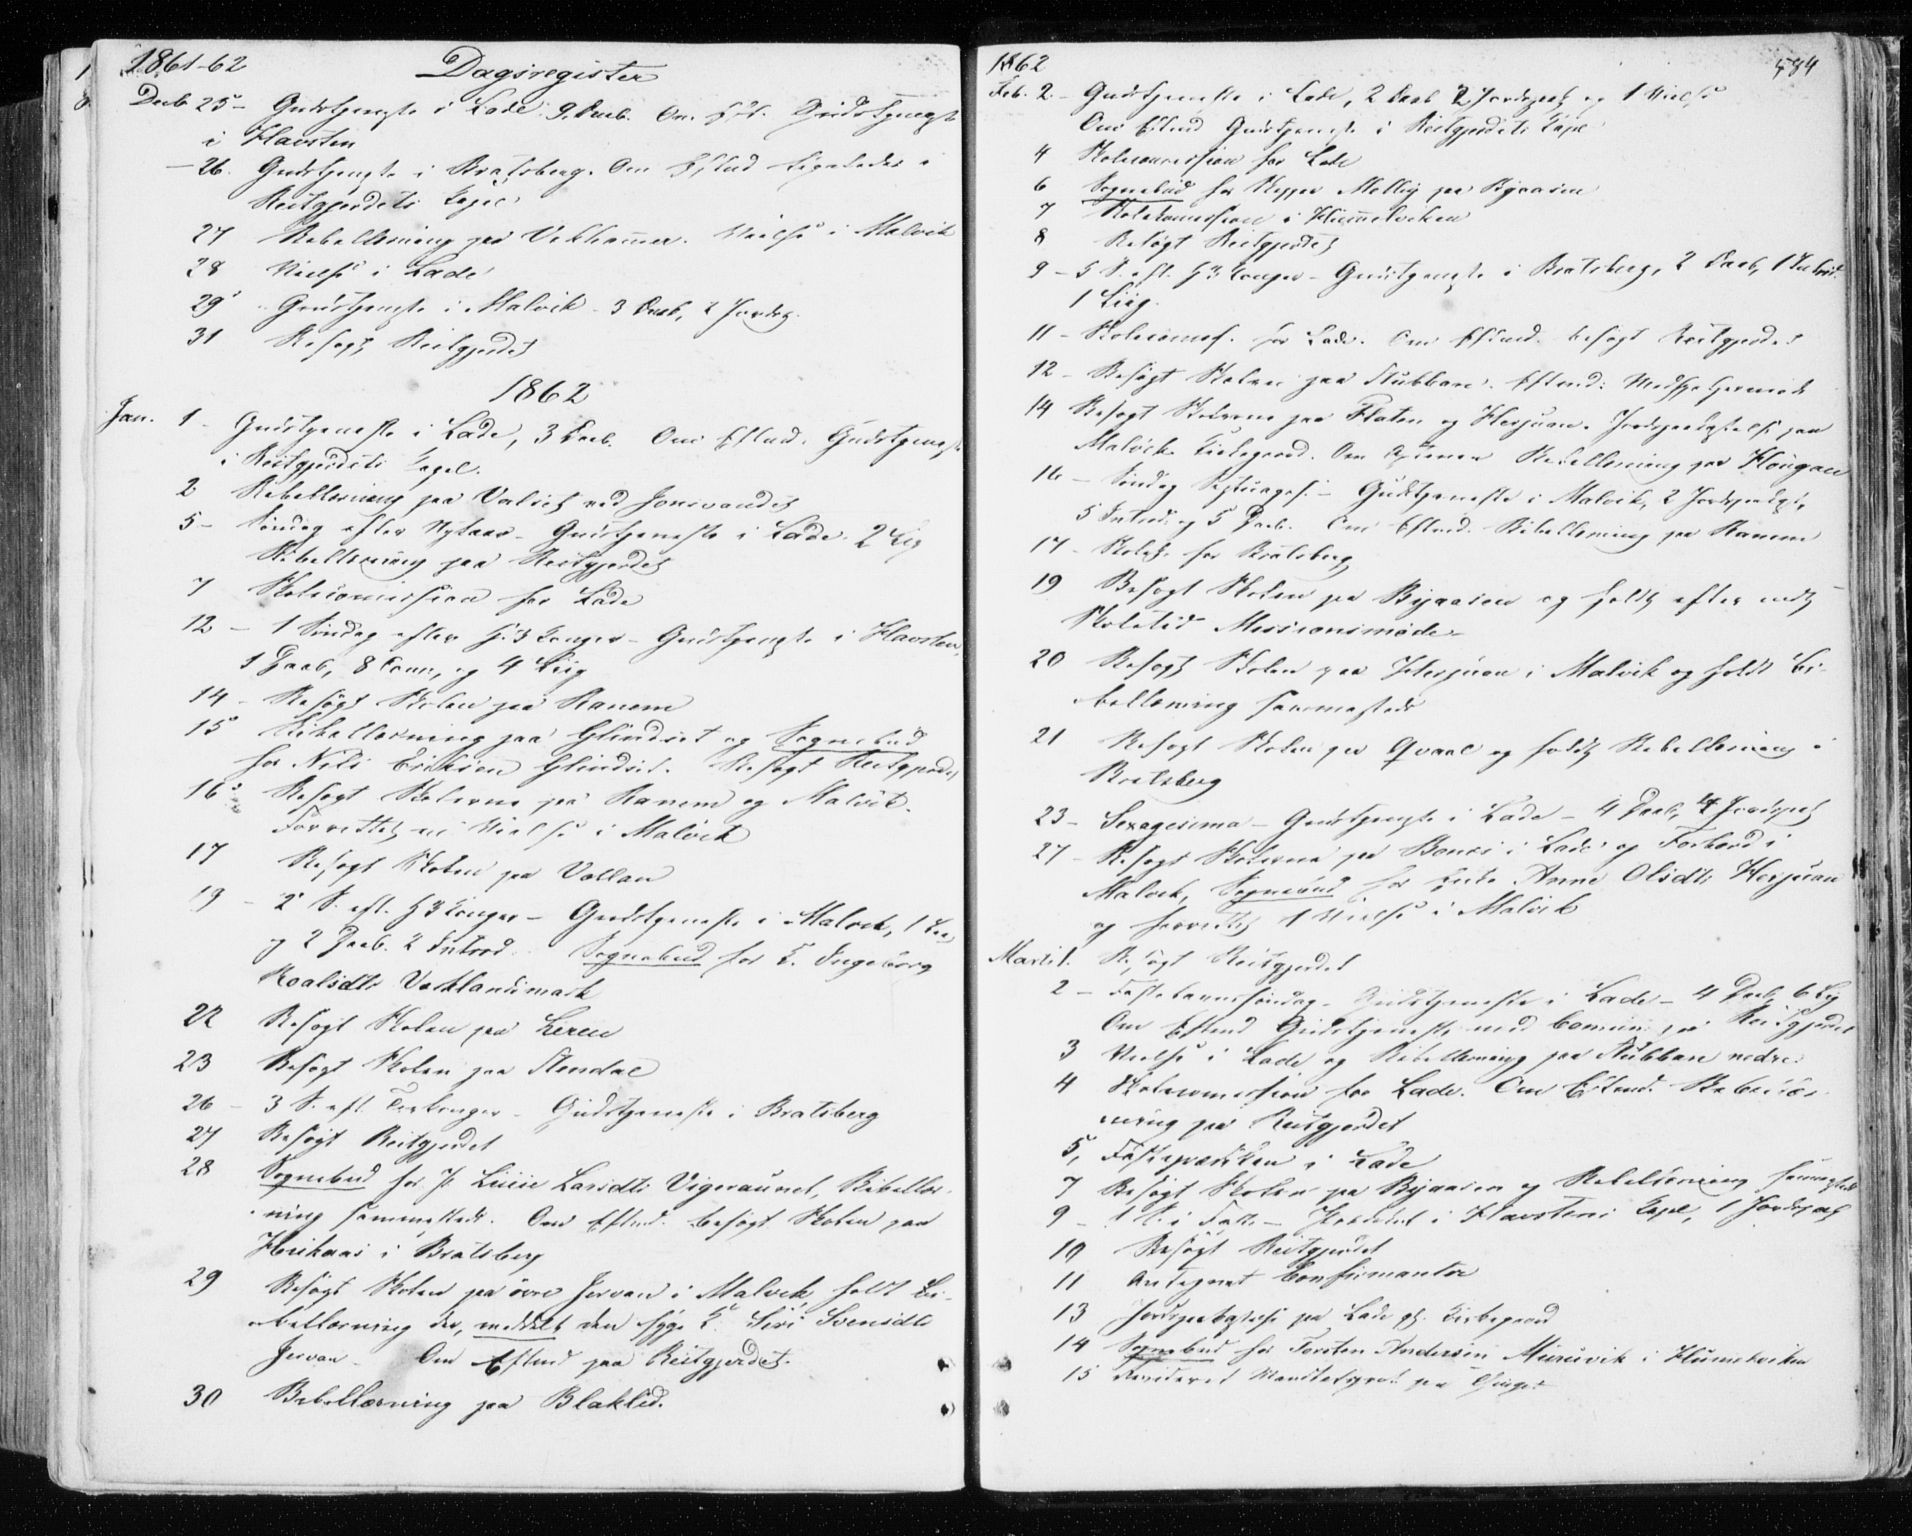 1861-62 Dagsregister
Decb 25 - Gudstjeneste i Lade. 9 Daab. Om Gudstjeneste
i Havsten
- 26. Gudstjeneste i Bratsberg. Om Eftmd ligeledes i
Reitgjerdets Capel
27 Bibellæsning paa Vekhammer. Vielse i Malvik
28 Vielse i Lade
29 Gudstjeneste i Malvik - 3 Daab, 2 Jordp.
31 Besøgt Reitgjerdet
1862
Jan. 1 - Gudstjeneste i Lade, 3 Daab. Om Eftmd. Gudstjeneste
i Reitgjerdets Capel.
2 Bibellæsning paa Valset ved Jonsvandet
5 - Søndag efter Nytaar - Gudstjeneste i Lade. 2 Lig
Bibellæsning paa Reitgjerdet
7 Skolecomission for Lade
12 - 1 Søndag efter H 3 Konger - Gudstjeneste i Havsten,
1 Daab, 8 Conf., og 4 Liig
14 - Besøgt Skolen paa Ranem
15 Bibellæsning paa Glindset og Sognebud
for Nils Eriksen Glindset. Besøgt Reitgjerdet
16 Besøgt Skolerne paa Ranem og Malvik.
Forrettet en Vielse i Malvik
17 Besøgt Skolen paa Vollan
19 - 2 S. eft. H 3 Konger - Gudstjeneste i Malvik, 1
og 2 Daab. 2 Introd. Sognebud for E. Ingeborg
Roaldsdtr Væklandsmark
22 Besøgt Skolen paa Leren
23 Besøgt Skolen paa Stendal
26 - 3 S. eft. Konger - Gudstjeneste i Bratsberg
27 Besøgt Reitgjerdet
28 Sognebud for P. Larsdtr Digeraunet, Bibellæs-
ning sammesteds. Om Eftmd. besøgt Skolen paa
i Bratsberg
29 Besøgt Skolen paa øvre Jervan i Malvik, holdt Bi-
bellæsning der, meddelt den syge E. Siri Svensdtr
Jervan - Om Eftmd paa Reitgjerdet.
30 Bibellæsning paa Blaklid.
1862 584
Feb. 2. - Gudstjeneste i Lade, 2 Daab 2 Jordpaak og 1 Vielse
Om Eftmd Gudstjeneste i Reitgjerdets Capel
4 Skolecomission for Lade
6 Sognebud for Møllig paa Byaasen
7 Skolecomission i Hummelviken
8 Besøgt Reitgjerdet
9 - 5 S. eft. H 3 Konger - Gudstjeneste i Bratsberg, 2 Daab, 1 Introd.
1 Liig.
11 - Skolecomsf. for Lade. Om Eftmd. besøgt Reitgjerdet
12 - Besøgt Skolen paa Stubban. Eftmd:
14 Besøgt Skolerne paa Flaten og Herjuan. Jordpaakastelse paa
Malvik Kirkegaard. Om Aftenen Bibellæsning paa Hougan
16 - Søndag Septuages. - Gudstjeneste i Malvik, 2 Jordpaakast.,
5 Introd. og 5 Daab. Om Eftmd. Bibellæsning paa Ranem
17 - for Bratsberg
19 Besøgt Skolen paa Byaasen og holdt efter endt
Skoletid Missionsmøde -
20 Besøgt Skolen paa Herjuan i Malvik og holdt Bi-
bellæsning sammesteds
21 Besøgt Skolen paa Qvaal og holdt Bibellæsning i
Bratsberg
23 - Sexagesima - Gudstjeneste i Lade - 4 Daab, 4 Jordpaak
27 - Besøgt Skolerne paa i Lade og Forbord i
Malvik, Sognebud for Enke Anne Olsdtr Herjuan
og forrettet 1 Vielse i Malvik
Marts 1. Besøgt Reitgjerdet
2 - Fastelavnssøndag - Gudstjeneste i Lade - 4 Daab, 6 Lig
Om Eftmd Gudstjeneste med Comun paa Reitgjerdet
3 Vielse i Lade og Bibellæsning paa Stubban nedre.
4 Skolecomission for Lade. Om Eftmd. Bibellæs-
ning paa Reitgjerdet
5, Fasteprædiken i Lade
7 Besøgt Skolen paa Byaasen og Bibellæsning sammesteds
9 - 1 S. i Faste - Prædiket i Havstens Capel, 1 Jordpaak
10 Besøgt Reitgjerdet
11 Antegnet Confirmanter
13 Jordpaakastelse paa Lade Kirkegaard
14 Sognebud for Torsten Andersen Muruvik i Hummelviken
15 Revideret Mandtallet paa